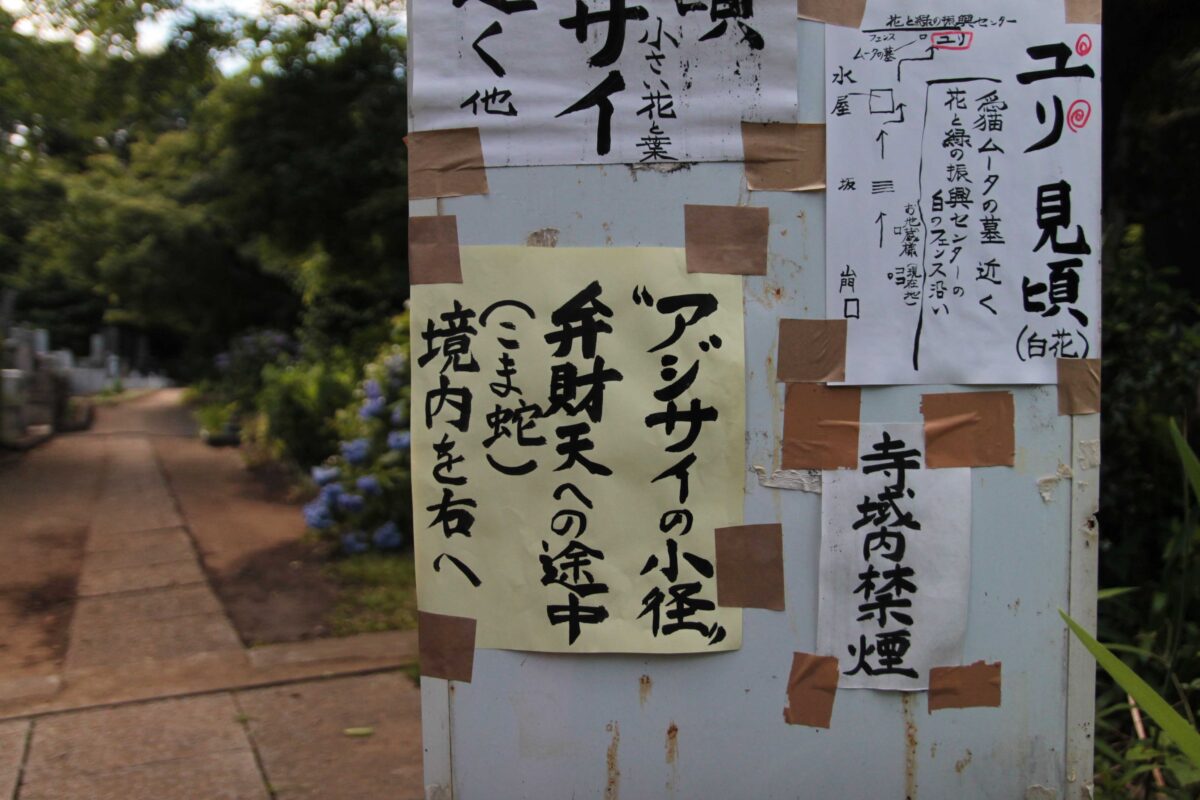 ユリ 見頃
(白花)
愛猫ムータの墓 近く
花と緑の振興センターの
白のフェンス沿い
花と緑の振興センター
フェンス
ユリ
ムータの墓
水屋
坂
お地蔵様(現在地)
山門
頃
小さい花と葉
サイ
く他
“アジサイの小径”
弁財天への途中
(こま蛇)
境内を右へ
寺域内禁煙